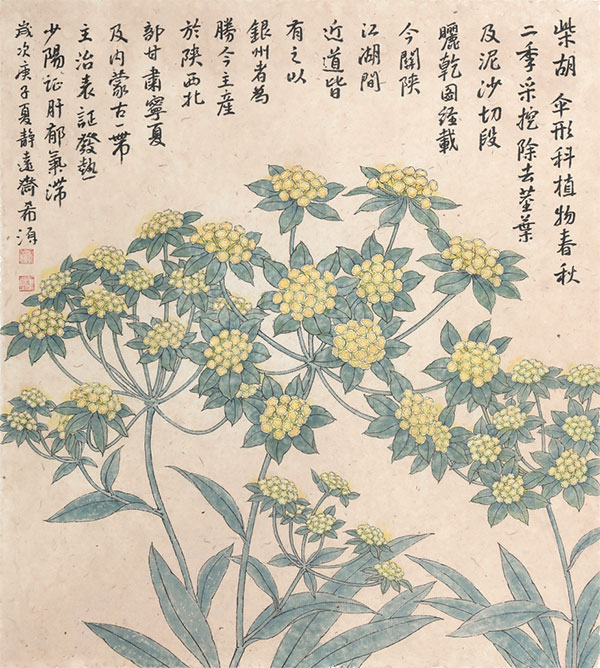 柴胡 傘形科植物春秋
二季采挖除去莖葉
及泥沙切段
曬乾图經載
今關陝
江湖間
近道皆
有之以
銀州者為
勝今主產
於陝西北
部甘肅寧夏
及內蒙古一帶
主治表証發熱
少陽証肝郁氣滞
歲次庚子夏靜遠齋希源